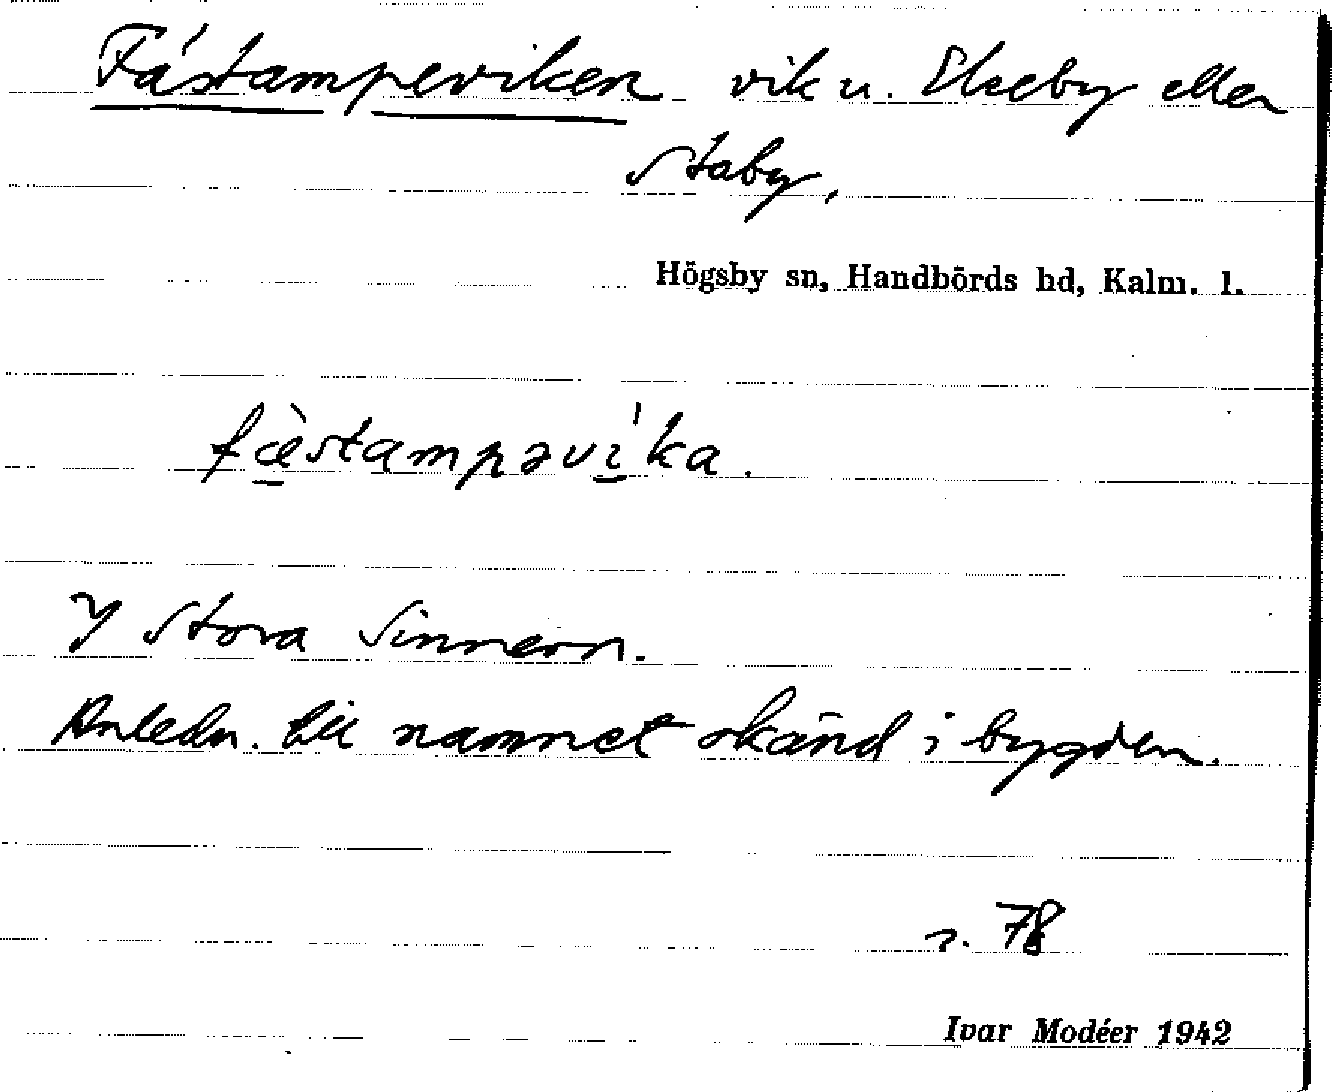 Fástampeviken vik u. Ekeby eller
Staby,
Högsby sn, Handbörds hd, Kalm. l.
fæ̀stampəvíka.
I Stora Sinnern.
Anledn. till namnet okänd i bygden.
s. 78
Ivar Modéer 1942